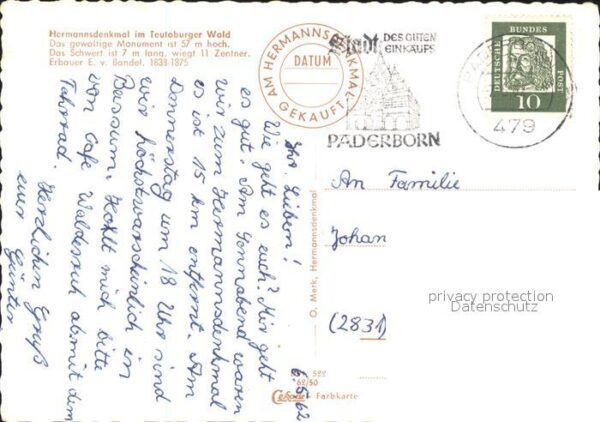 Hermannsdenkmal im Teutoburger Wald
Das gewaltige Monument ist 57 m hoch.
Das Schwert ist 7 m lang, wiegt 11 Zentner.
Erbauer E. v. Bandel. 1838-1875
AM HERMANNSDENKMAL GEKAUFT
DATUM
Stadt DES GUTEN
EINKAUFS
PADERBORN
479
DEUTSCHE BUNDESPOST
10
6.5.62
Ihr Lieben!
Wie geht es euch? Mir geht
es gut. Am Sonnabend waren
wir zum Hermannsdenkmal
es ist 15 km entfernt. Am
Donnerstag um 18 Uhr sind
wir höchstwarscheinlich in
Barsum. Holt mich bitte
von Cafe Waldesruh ab mit dem
Fahrrad.
Herzlichen Gruß
euer Günter
An Familie
Johan
(2831)
O. Merk, Hermannsdenkmal
522
62/50
Cekade Farbkarte
privacy protection
Datenschutz